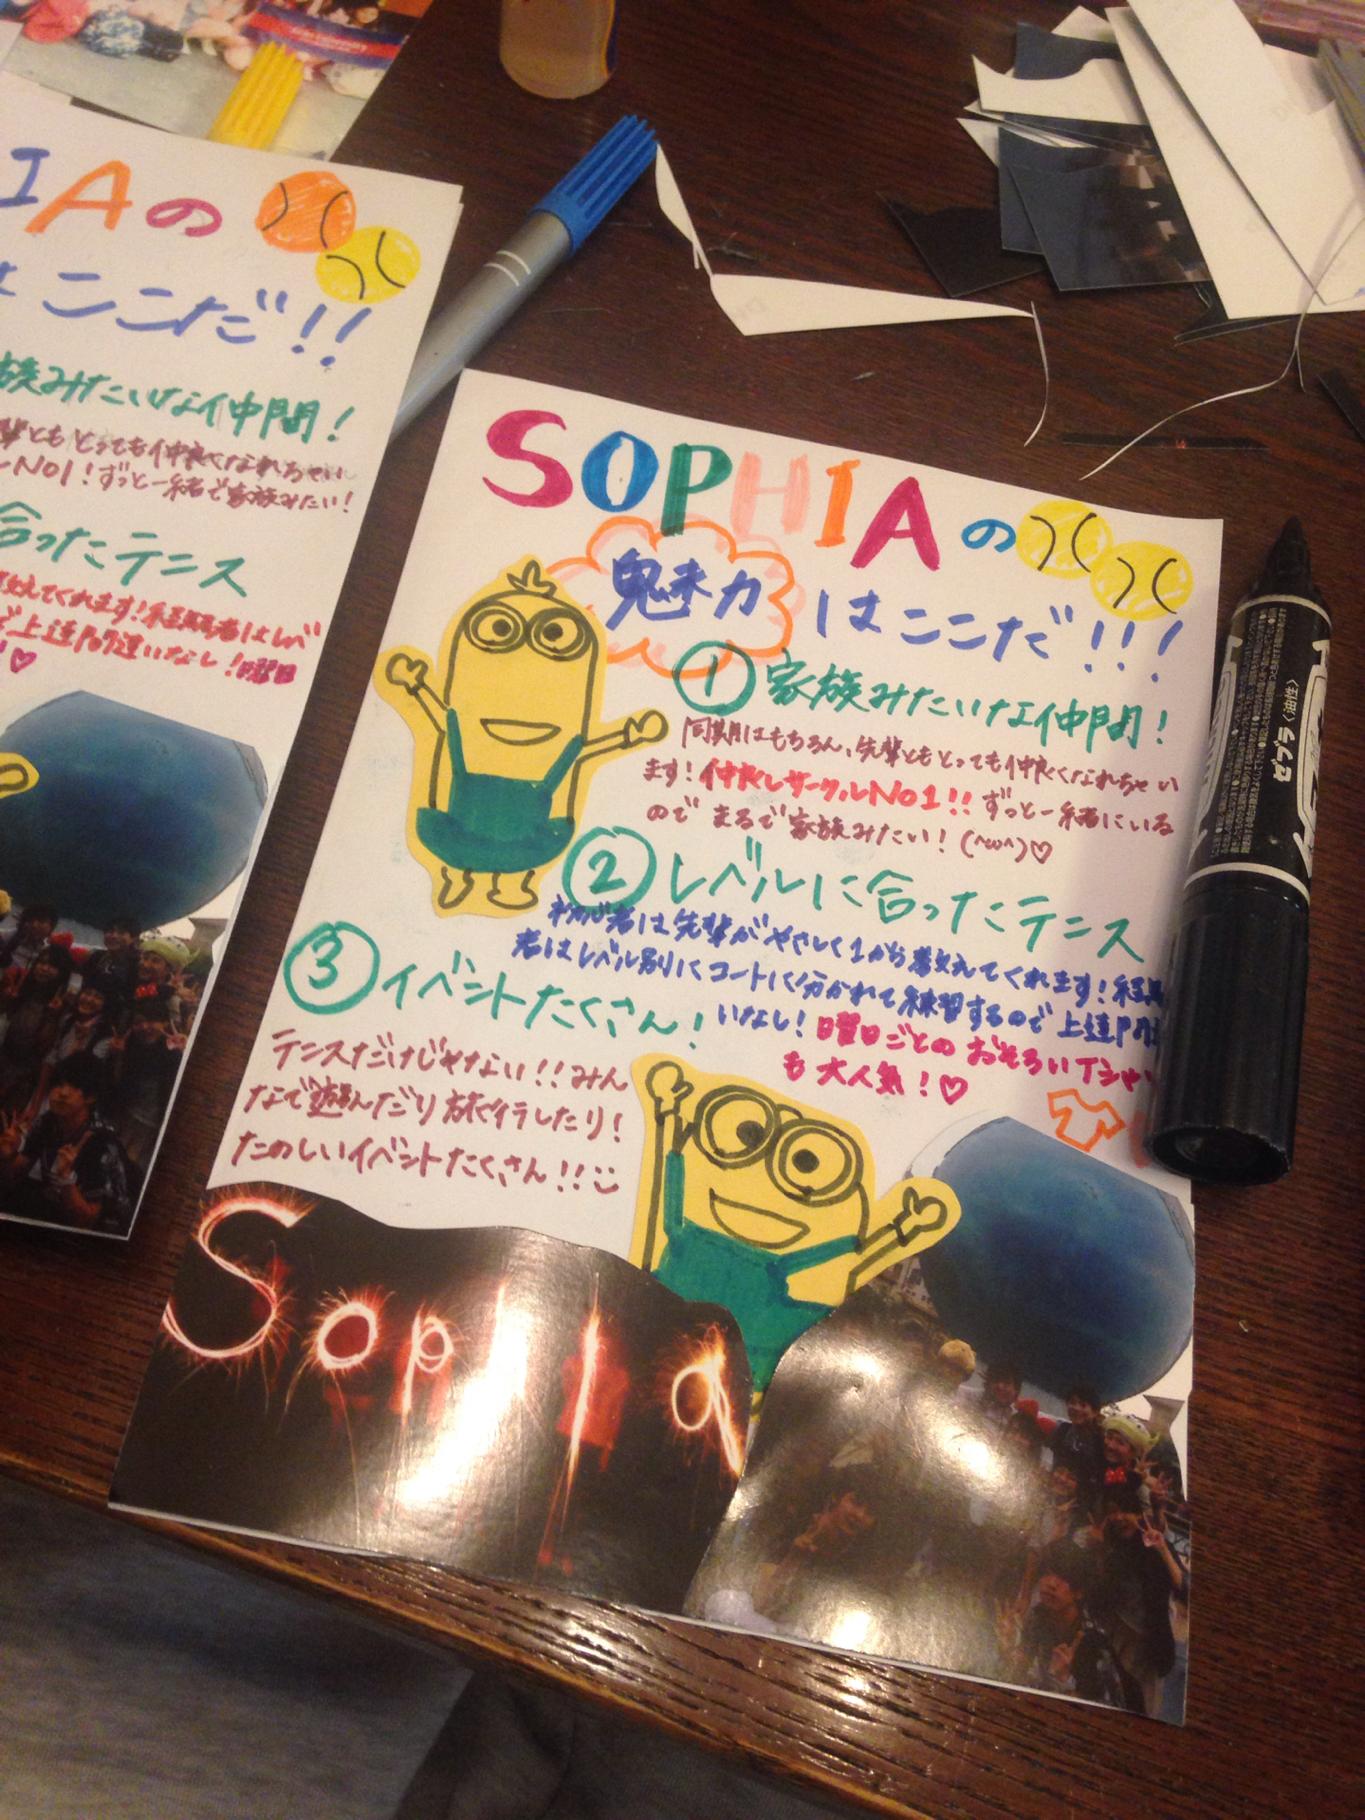 IAの
はここだ!!
族みたいな仲間!
輩ともとっても仲良くなれちゃい
No1!ずっと一緒で家族みたい!
合ったテニス
えてくれます!経験者はレベ
で上達間違いなし!曜日
!♡
SOPHIAの
魅力はここだ!!!
①家族みたいな仲間!
同期はもちろん、先輩ともとっても仲良くなれちゃい
ます!仲良しサークルNo1!!ずっと一緒にいる
ので まるで家族みたい!(^ω^)♡
②レベルに合ったテニス
初心者は先輩がやさしく1から教えてくれます!経験
者はレベル別にコートに分かれて練習するので上達間違
いなし!曜日ごとのおそろいTシャ
も大人気!♡
③イベントたくさん!
テニスだけじゃない!!みん
なで遊んだり旅行したり!
たのしいイベントたくさん!!
Sophia
ゼブラ〈油性〉